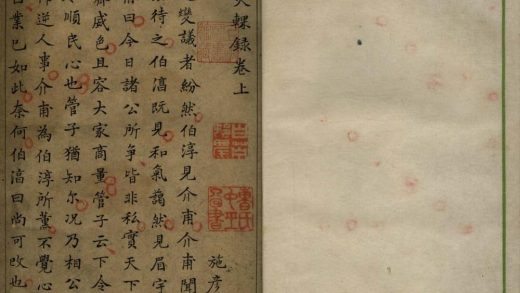 輠録卷上
施彦
變議者紛然伯淳見介甫介甫聞
待之伯淳既見和氣藹然見眉宇
曰今日諸公所爭皆非私實天下
威色且容大家商量管子云下令
順民心也管子猶知尔况乃相公
逆人事介甫為伯淳所薰不覺心
業已如此奈何伯淳曰尚可改也